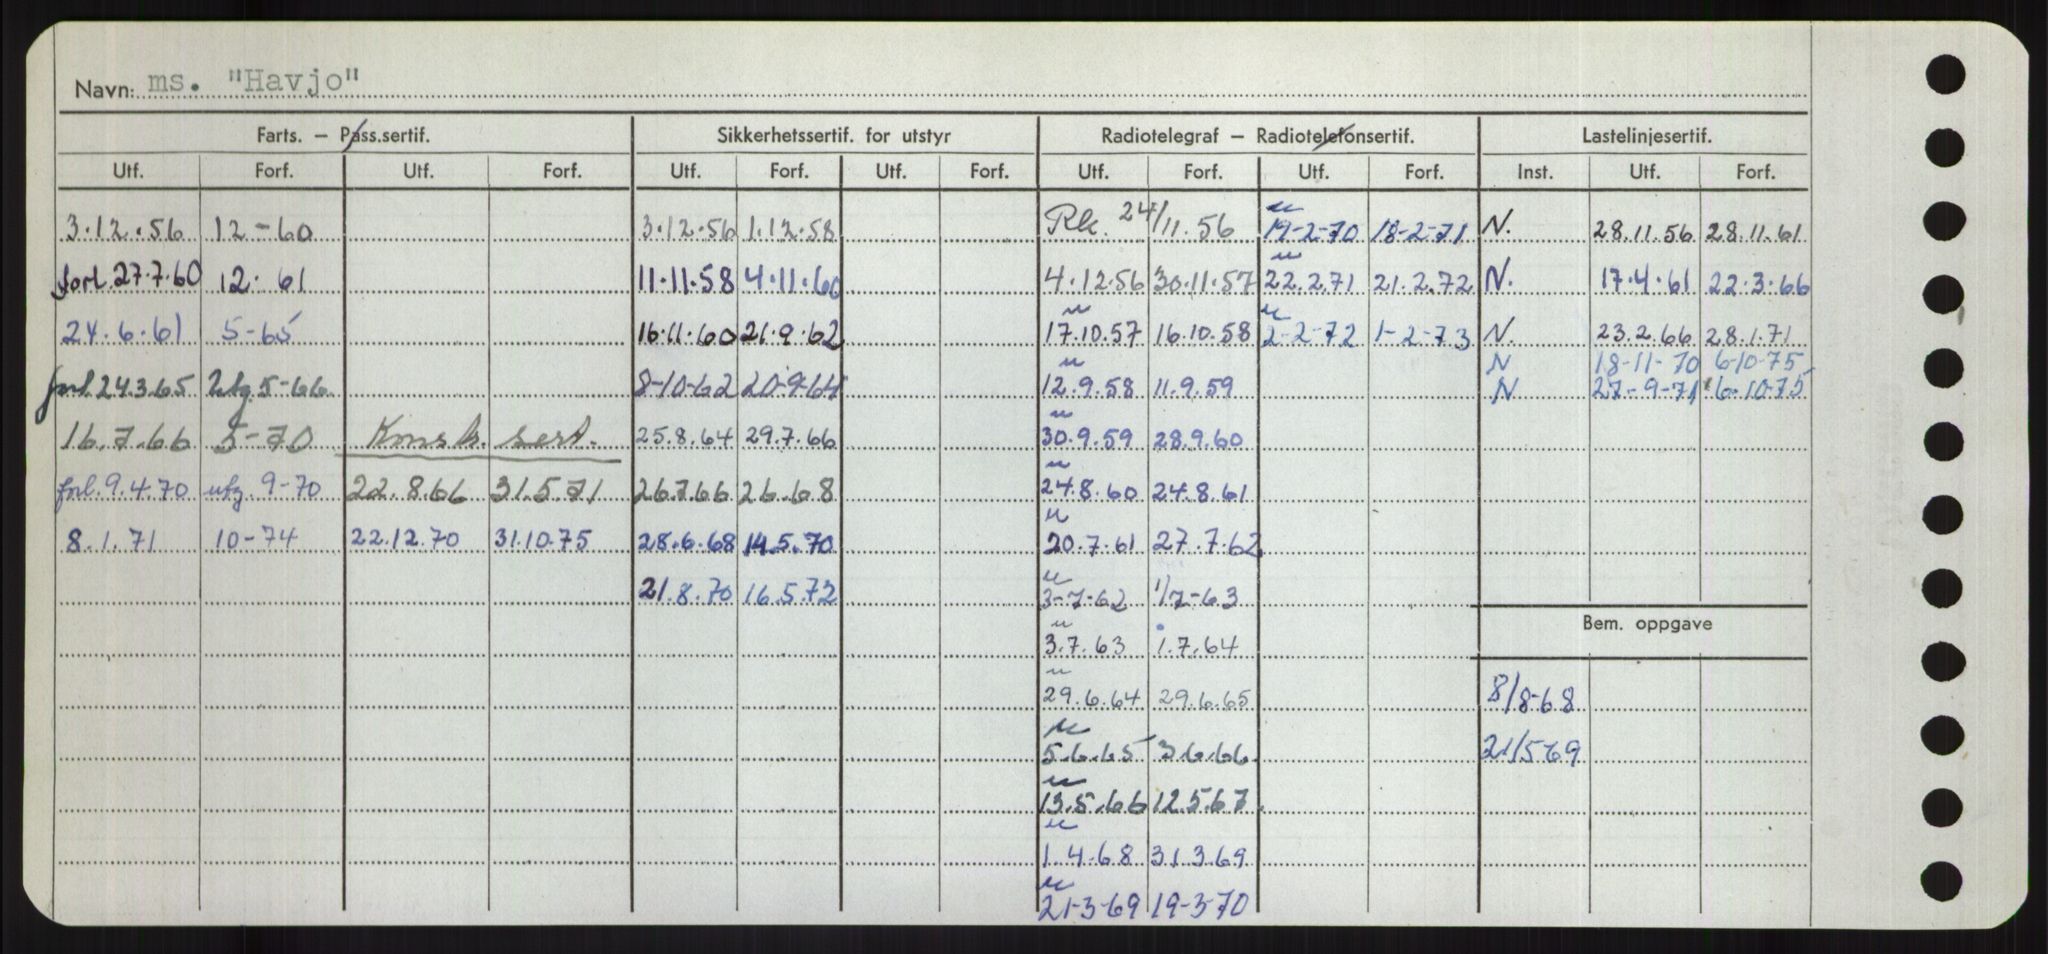 Navn: ms. "Havjo"
Farts. – Pass.sertif. Sikkerhetssertif. for utstyr Radiotelegraf – Radiotelefonsertif. Lastelinjesertif.
Utf. Forf. Utf. Forf. Utf. Forf. Utf. Forf. Utf. Forf. Utf. Forf. Inst. Utf. Forf.
3.12.56 12-60 3.12.56 1.12.58 Rk. 24/11.56 19-2-70 18-2-71 N. 28.11.56 28.11.61
forl. 27.7.60 12. 61 11.11.58 4.11.60 4.12.56 30.11.57 22.2.71 21.2.72 N. 17.4.61 22.3.66
24.6.61 5-65 16.11.60 21.9.62 17.10.57 16.10.58 2-2-72 1-2-73 N. 23.2.66 28.1.71
N 18-11-70 6-10-75
forl. 24.3.65 utg 5-66 8-10-62 20-9-64 12.9.58 11.9.59 N 27-9-71 6-10-75
16.7.66 5-70 Konstr. sert. 25.8.64 29.7.66 30.9.59 28.9.60
forl. 9.4.70 utg. 9-70 22.8.66 31.5.71 26.7.66 26.68 24.8.60 24.8.61
8.1.71 10-74 22.12.70 31.10.75 28.6.68 14.5.70 20.7.61 27.7.62
21.8.70 16.5.72 3-7-62 1/7-63
Bem. oppgave
3.7.63 1.7.64
29.6.64 29.6.65 8/8-68
5.6.65 3.6.66 21/569
13.5.66 12.5.67
1.4.68 31.3.69
21-3-69 19-3-70